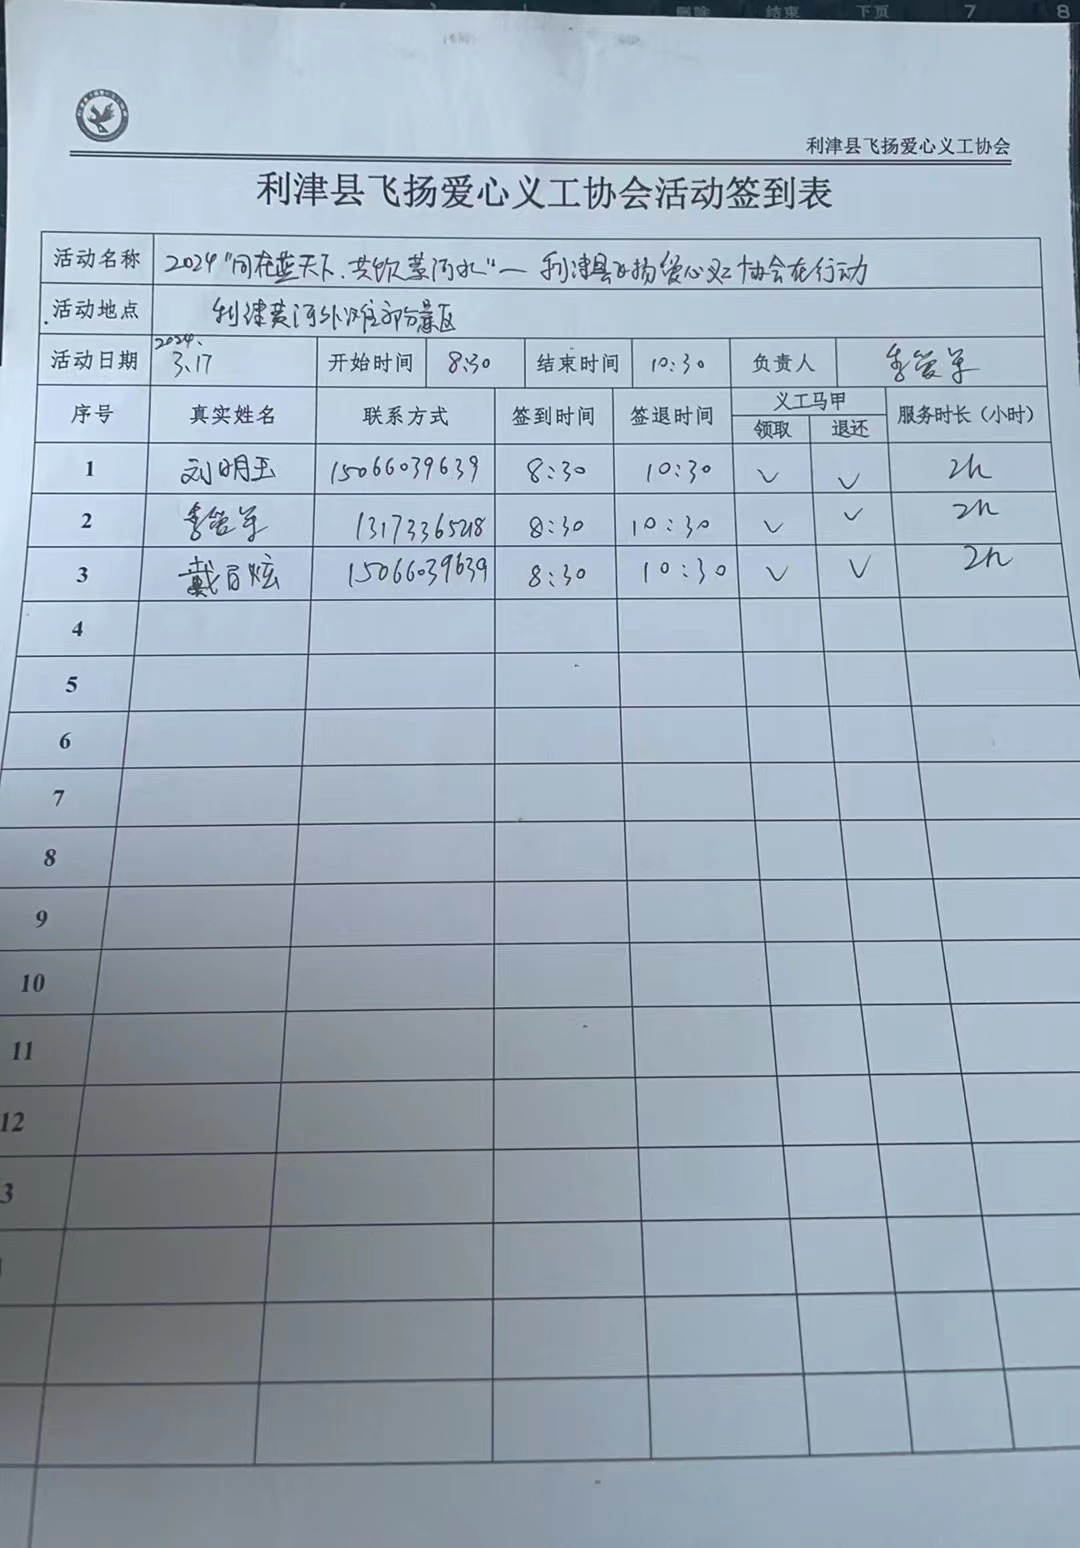 删除 结束 下页 7 8
利津县飞扬爱心义工协会
利津县飞扬爱心义工协会活动签到表
活动名称 2024"同在蓝天下、共饮黄河水"—利津县飞扬爱心义工协会在行动
活动地点 利津黄河外滩部分景区
活动日期 2024. 3.17 开始时间 8:30 结束时间 10:30 负责人 李管军
序号 真实姓名 联系方式 签到时间 签退时间 义工马甲 服务时长（小时）
领取 退还
1 刘明玉 15066039639 8:30 10:30 ✓ ✓ 2h
2 李管军 13173365218 8:30 10:30 ✓ ✓ 2h
3 戴 炫 15066039639 8:30 10:30 ✓ ✓ 2h
4
5
6
7
8
9
10
11
12
3